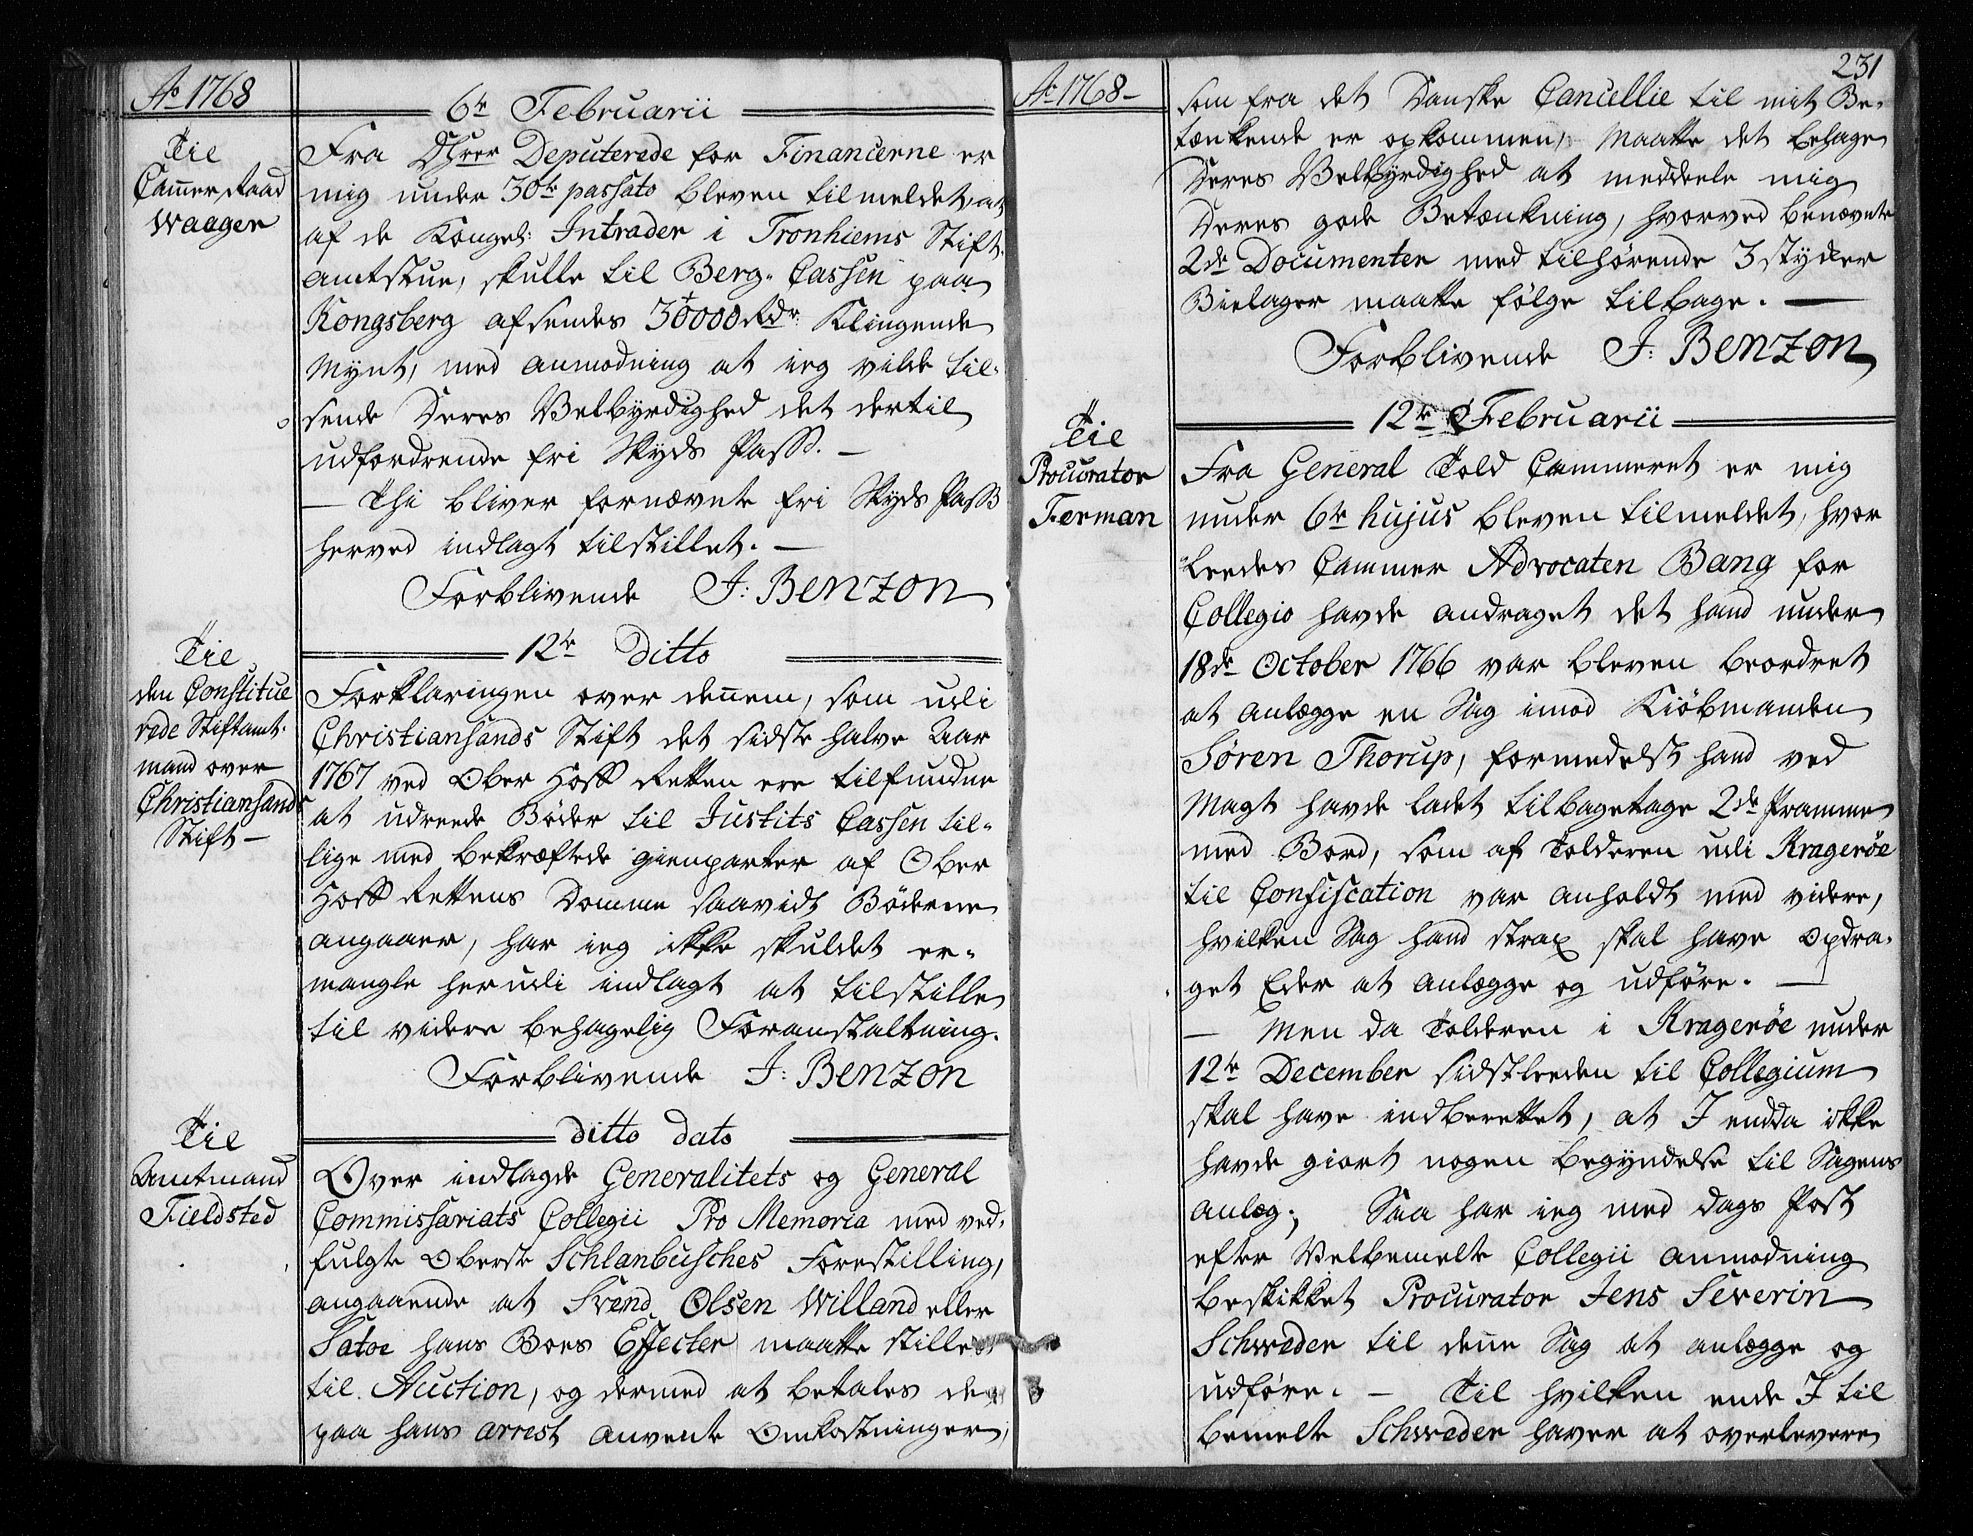 Ao 1768
6te Februarii
Til
Camer Raad
Waager
Fra DHrer Deputerede for Financerne er
mig under 30te passato bleven tilmeldet, at
af de Kongel: Intrader i Tronhiems Stift
amtstue, skulle til Berg-Cassen paa
Kongsberg afsendes 30000 Rdr Klingende
Mynt, med anmodning at ieg vilde til-
sende Deres Velbyrdighed det dertil
udfordrende fri Skyds Pass. —
— Thi bliver fornævnte fri Skyds Pass
herved indlagt tilstillet. —
Forblivende J: Benzon
12te Ditto
Til
den Constitue
rede Stiftamt-
mand over
Christiansands
Stift —
Forklaringen over dennem, som udi
Christiansands Stift det sidste halve Aar
1767 ved Ober Hoff Retten ere tilfundne
at udreede Bøder til Justits Cassen til-
lige med bekræftede gienparter af Ober
Hoff Rettens Domme saavidt Bøderne
angaaer, har ieg ikke skuldet er-
mangle herudi indlagt at tilstille
til videre behagelig Foranstaltning.
Forblivende J: Benzon
ditto dato
Til
Amtmand
Fieldsted
Over indlagde Generalitets og General
Commissariats Collegii Pro Memoria med ved-
fulgte Oberste Schlanbusches Forestilling,
angaaende at Svend Olsen Willand eller
Satoe hans Boes Effecter maatte stilles
til Auction, og dermed at betales de
paa hans arrest anvente Omkostninger,
Ao 1768 —
231
som fra det Danske Cancellie til mit Be-
tænkende er opkommen, Maatte det behage
Deres Velbyrdighed at meddeele mig
Deres gode Betænkning, hvorved benævnte
2de Documenter med tilhørende 3 stykker
Bielager maatte følge tilbage. —
Forblivende J: Benzon
12te Februarii
Til
Procurator
Ferman
Fra General Told Cammeret er mig
under 6te hujus bleven tilmeldet, hvor
leedes Cammer Advocaten Bang for
Collegio havde andraget det hand under
18de October 1766 var bleven beordret
at anlægge en Sag imod Kiøbmanden
Søren Thorup, formedelst hand ved
Magt havde ladet tilbagetage 2de Pramme
med Bord, som af Tolderen udi Kragerøe
til Confiscation var anholdt med videre,
hvilken Sag hand strax skal have opdra-
get Eder at anlægge og udføre. —
— Men da Tolderen i Kragerøe under
12te December sidstleeden til Collegium
skal have indberettet, at I endda ikke
havde giort nogen begyndelse til Sagens
anlæg; Saa har ieg med dags Post
efter Velbemelte Collegii anmodning
beskikket Procurator Jens Severin
Schweder til denne Sag at anlægge og
udføre. — Til hvilken ende I til
bemelte Schweder haver at overlevere